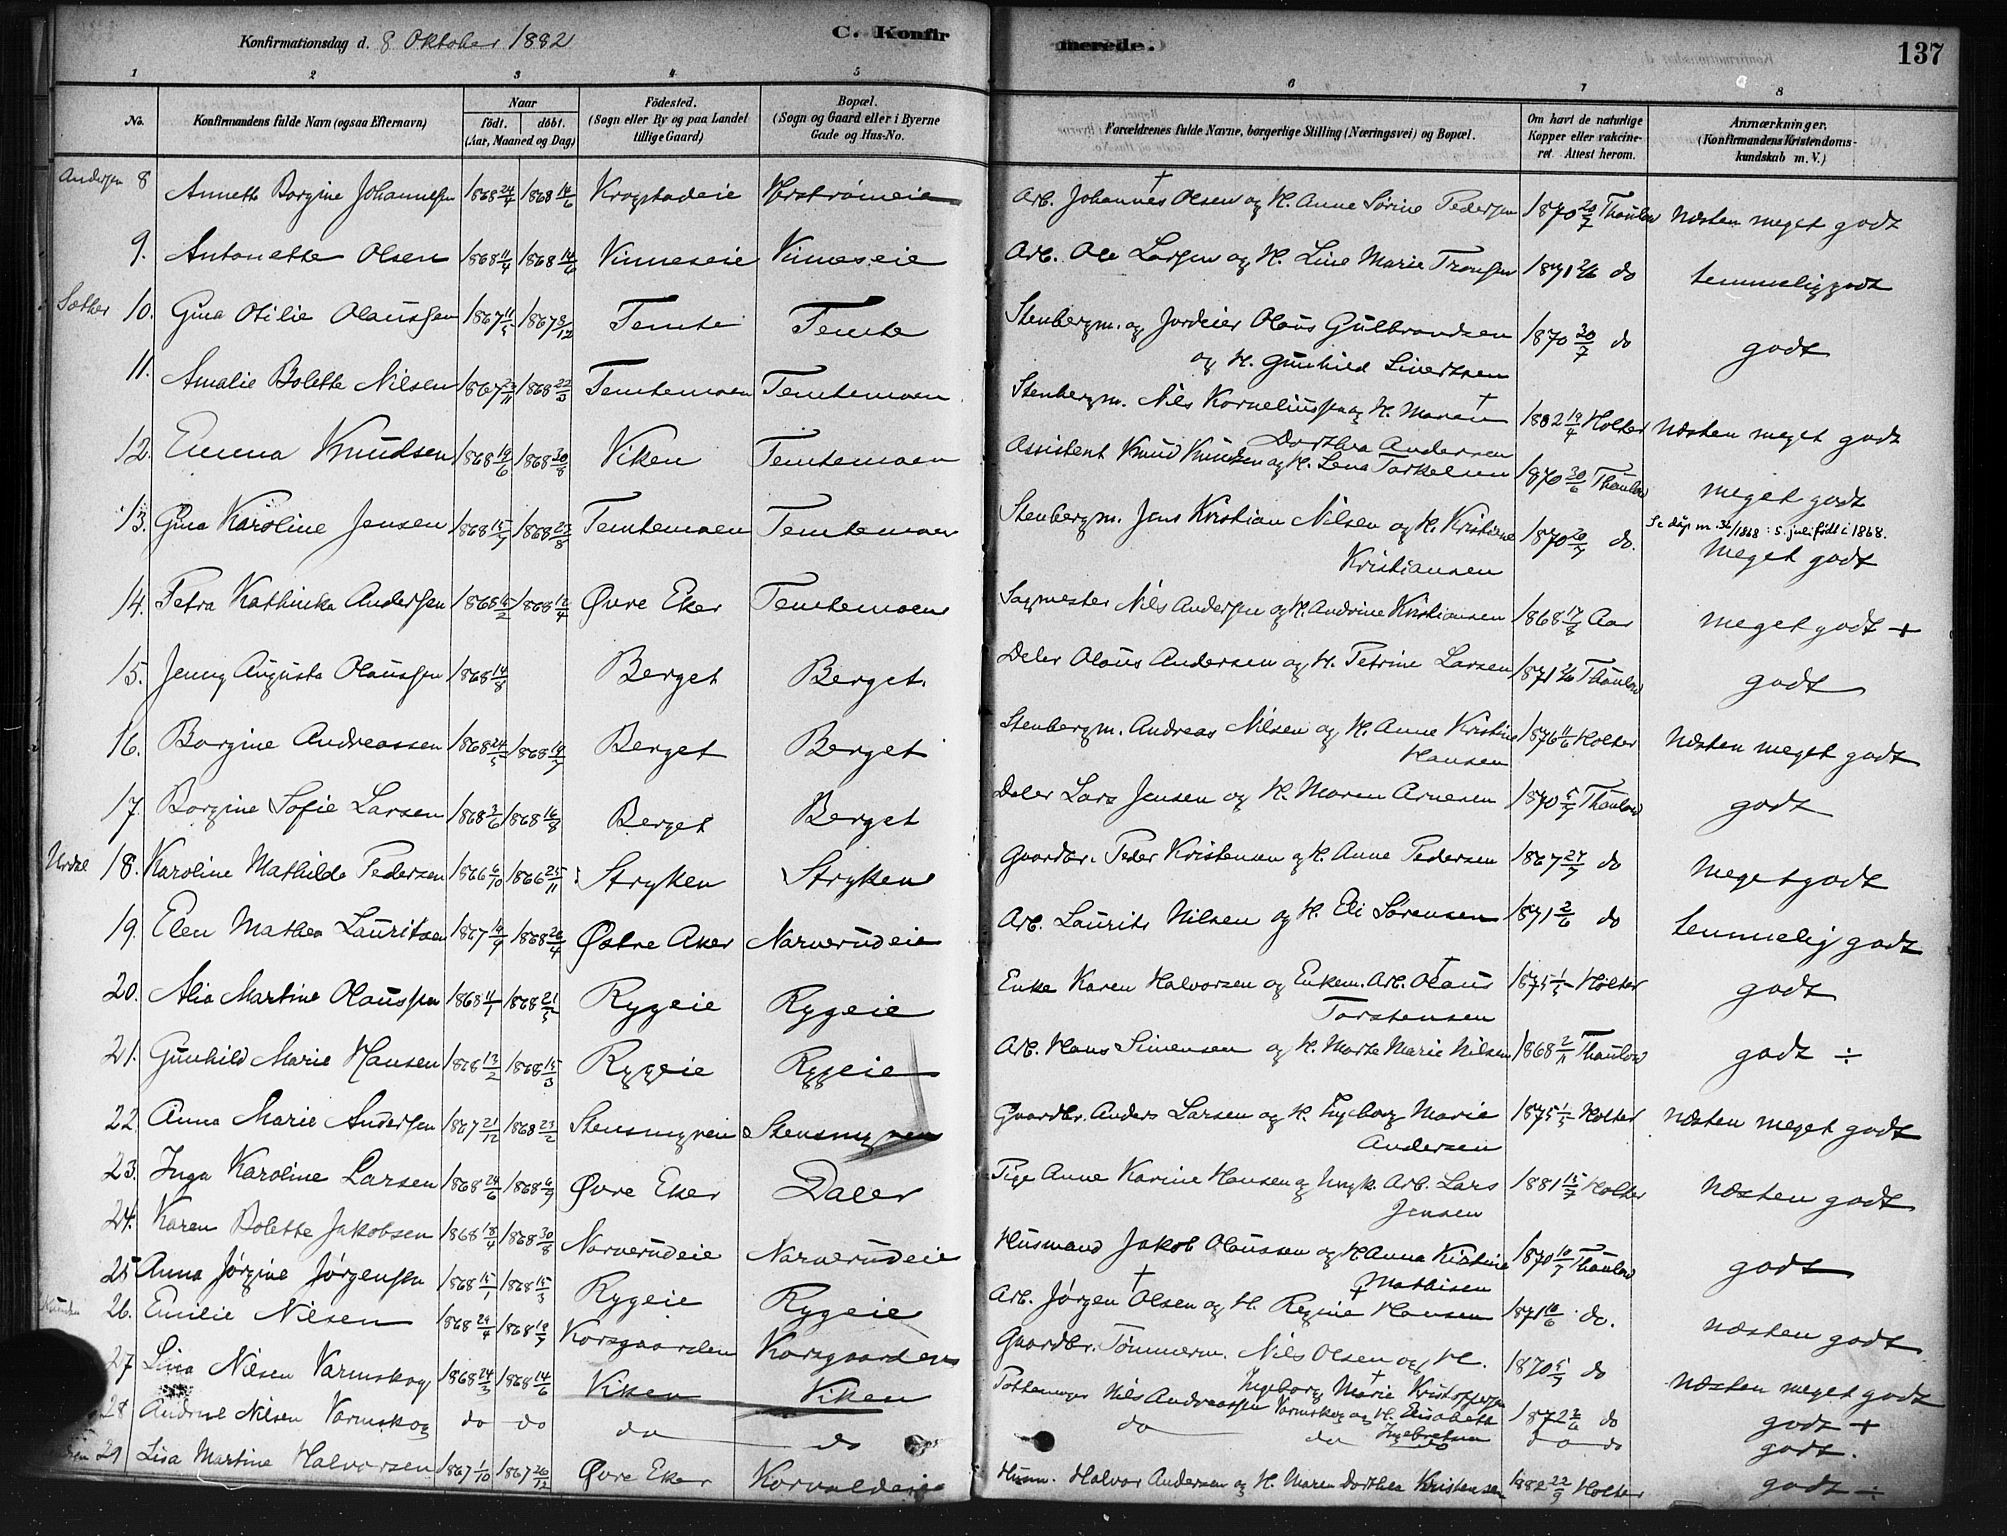 Konfirmationsdag d. 8 Oktober 1882
C. Konfirmerede.
137
1 2 3 4 5 6 7 8
No. Konfirmandens fulde Navn (ogsaa Efternavn) Naar født. døbt. (Aar, Maaned og Dag) Fødested. (Sogn eller By og paa Landet tillige Gaard) Bopæl. (Sogn og Gaard eller i Byerne Gade og Hus-No. Forældrenes fulde Navne, borgerlige Stilling (Næringsvei) og Bopæl. Om havt de naturlige Kopper eller vakcineret. Attest herom. Anmærkninger. (Konfirmandens Kristendomskundskab m. V.)
Andersen 8 Annette Borgine Johannesen 1868 24/4 1868 14/6 Krogstadeie Arb. Johannes † Olsen og H. Anne Sørine Pedersen 1870 20/7 Thaulow Næsten meget godt
9. Antonette Olsen 1868 11/4 1868 14/6 Vinneseie Vinneseie Arb. Ole Larsen og H. Line Marie Tronsen 1871 2/6 do temmelig godt
Sæther 10. Gina Otilie Olaussen 1867 11/5 1867 8/12 Temte Temte Stenbergm. og Jordeier Olaus Gulbrandsen og H. Gunhild Sivertsen 1870 30/7 do godt
11. Amalie Bolette Nilsen 1867 23/11 1868 22/3 Temtemoen Temtemoen Stenbergm. Nils Korneliussen og H. Maren † Dorthea Andersen 1882 19/4 Holter Næsten meget godt
12. Emma Knudsen 1868 19/6 1868 30/8 Viken Temtemoen Assistent Knud Knudsen og H. Lena Torkelsen 1870 30/6 Thaulow meget godt
13. Gina Karoline Jensen 1868 15/7 1868 23/8 Temtemoen Temtemoen Stenbergm. Jens Kristian Nilsen og H. Kristine Kristiansen 1870 20/7 do. Se dåp nr. 36/1868 : 5. juli født i 1868. meget godt
14. Petra Kathinka Andersen 1868 1868 12/4 Øvre Eker Temtemoen Sagmester Nils Andersen og H. Andrine Kristiansen 1868 17/8 Aar meget godt +
15. Jenny Augusta Olaussen 1868 14/8 Berget Berget. Deler Olaus Andersen og H. Petrine Larsen 1871 2/6 Thaulow godt
16. Borgine Andreassen 1868 24/5 1868 19/7 Berget Berget Stenbergm. Andreas Nilsen og H. Anne Kristine Hansen 1876 11/6 Holter Næsten meget godt
17. Borgine Sofie Larsen 1868 3/6 1868 16/8 Berget Berget Deler Lars Jensen og H. Maren Arnesen 1870 5/7 Thaulow godt
Urdal 18. Karoline Mathilde Pedersen 1866 6/10 1866 25/11 Stryken Stryken Gaardbr. Peder Kristensen og H. Anne Pedersen 1867 27/7 do Meget godt
19. Elen Mathea Lauritsen 1867 19/9 1868 26/4 Østre Aker Narverudeie Arb. Laurits Nilsen og H. Eli Sørensen 1871 2/6 do temmelig godt
20. Alia Martine Olaussen 1868 11/1 1868 21/5 Rygeie Rygeie Enke Karen Halvorsen og Enkem. Arb. Olaus † Torstensen 1875 1/5 Holter godt
21. Gunhild Marie Hansen 1868 13/2 1868 15/3 Rygeie Rygeie Arb. Hans Simensen og H. Marte Marie Nilsen 1868 2/11 Thaulow godt ÷
22. Anna Marie Andersen 1867 21/12 1868 23/2 Stensmyren Stensmyren Gaardbr. Anders Larsen og H. Ingeborg Marie Andersen 1875 1/5 Holter næsten meget godt
23. Inga Karoline Larsen 1868 24/6 1868 6/9 Øvre Eker Daler Pige Anne Karine Hansen og Ungk. Arb. Lars Jensen 1881 15/7 Holter Næsten godt
24. Karen Bolette Jakobsen 1868 18/4 1868 30/8 Narverudeie Narverudeie Husmand Jakob Olaussen og H. Anna Kristine Mathisen 1870 10/7 Thaulow godt
25 Anna Jørgine Jørgensen 1868 15/1 1868 15/3 Rygeie Rygeie Arb. Jørgen † Olsen og H. Regine † Hansen 1871 10/6 do. næsten godt
26. Emilie Nilsen 1868 29/4 1868 19/7 Korsgaarden Korsgaarden Gaardbr. Tømmerm. Nils Olsen og H. Ingeborg Marie Kristoffersen 1870 5/7 do Næsten meget godt
27 Lina Nilsen Varmskog 1868 24/3 1868 14/6 Viken Viken Nils Andreassen Varmskog og H. † Elisabeth Ingebretsen 1872 2/6 do godt +
28 Andrine Nilsen Varmskog do do do do do do do do do godt.
29 Lisa Martine Halvorsen 1867 1/10 1867 26/12 Øvre Eker Korvaldeie Husm. Halvor Andersen og H. Maren Dorthea Kristensen 1882 22/9 Holter godt ÷